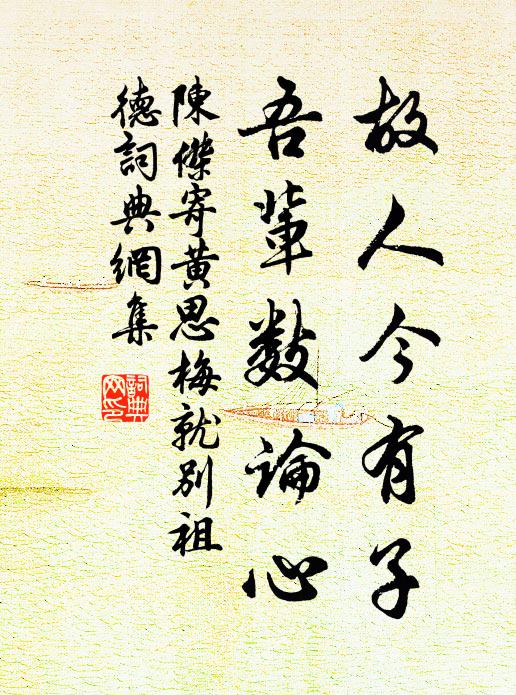 故人今有子
吾輩数論心
陳傑寄黃思梅就別祖
德詞典網集
詞典
网印